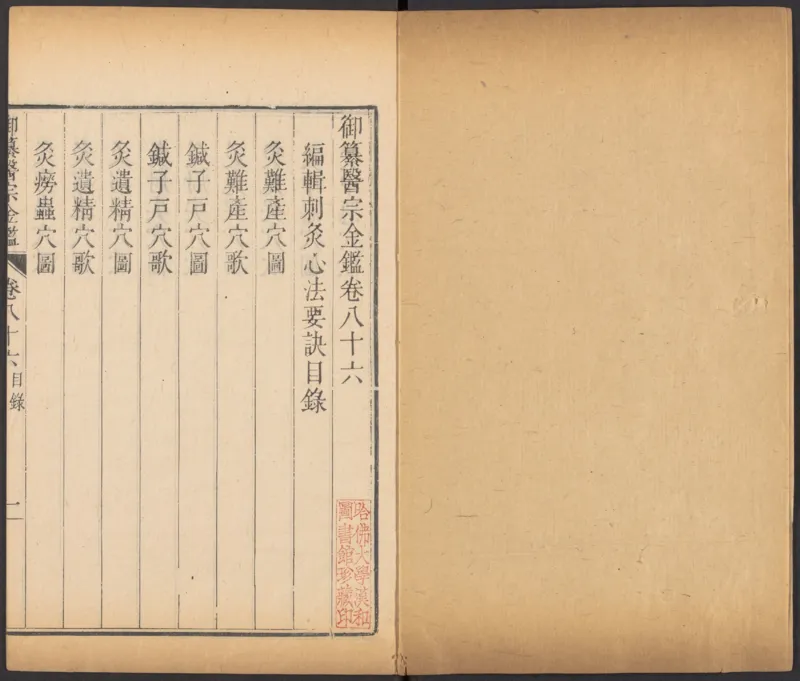 御纂醫宗金鑑卷八十六
編輯刺灸心法要訣目錄
灸難產穴圖
灸難產穴歌
鍼子戶穴圖
鍼子戶穴歌
灸遺精穴圖
灸遺精穴歌
灸癆蟲穴圖
御纂醫宗金鑑 卷八十六 目錄 一
哈佛大學漢和
圖書館珍藏印